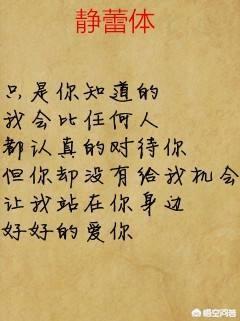 静蕾体
只是你知道的
我会比任何人
都认真的对待你
但你却没有给我机会
让我站在你身边
好好的爱你
悟空问答